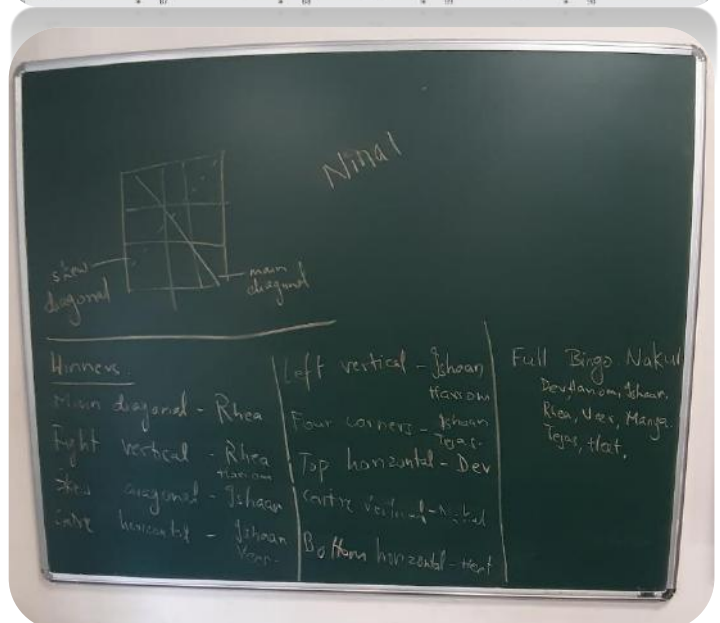 Ninal
skew
diagonal
main
diagonal
Winners
Main diagonal - Rhea
Right vertical - Rhea
Hariom
Skew diagonal - Ishaan
horizontal - Ishaan
Veer
Left vertical - Ishaan
Hariom
Four corners - Ishaan
Tejas
Top horizontal - Dev
Centre vertical -
Bottom horizontal - Heet
Full Bingo Nakul
Dev, Hariom, Ishaan,
Rhea, Veer, Manya
Tejas, Heet,